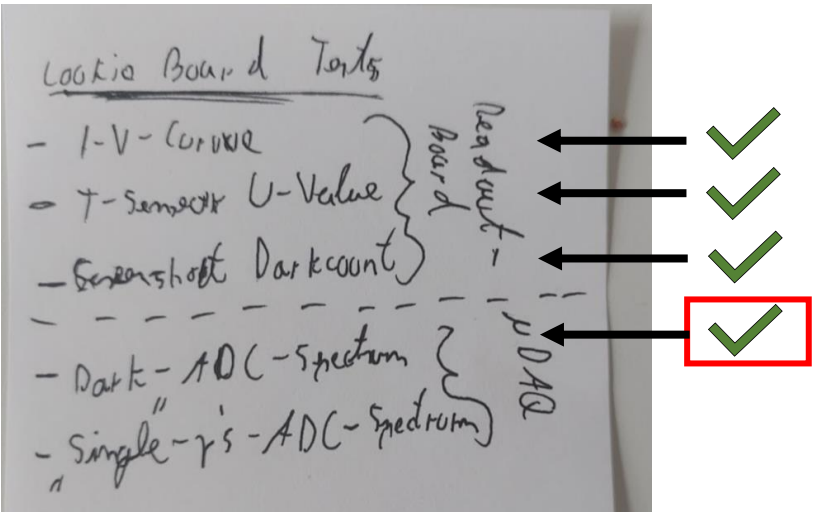 Cookie Board Tests
- I-V-Curve
- T-Sensor U-Value
- Screenshot Darkcount
Readout-
Board
- Dark-ADC-Spectrum
- "Single"-γ's-ADC-Spectrum
μDAQ